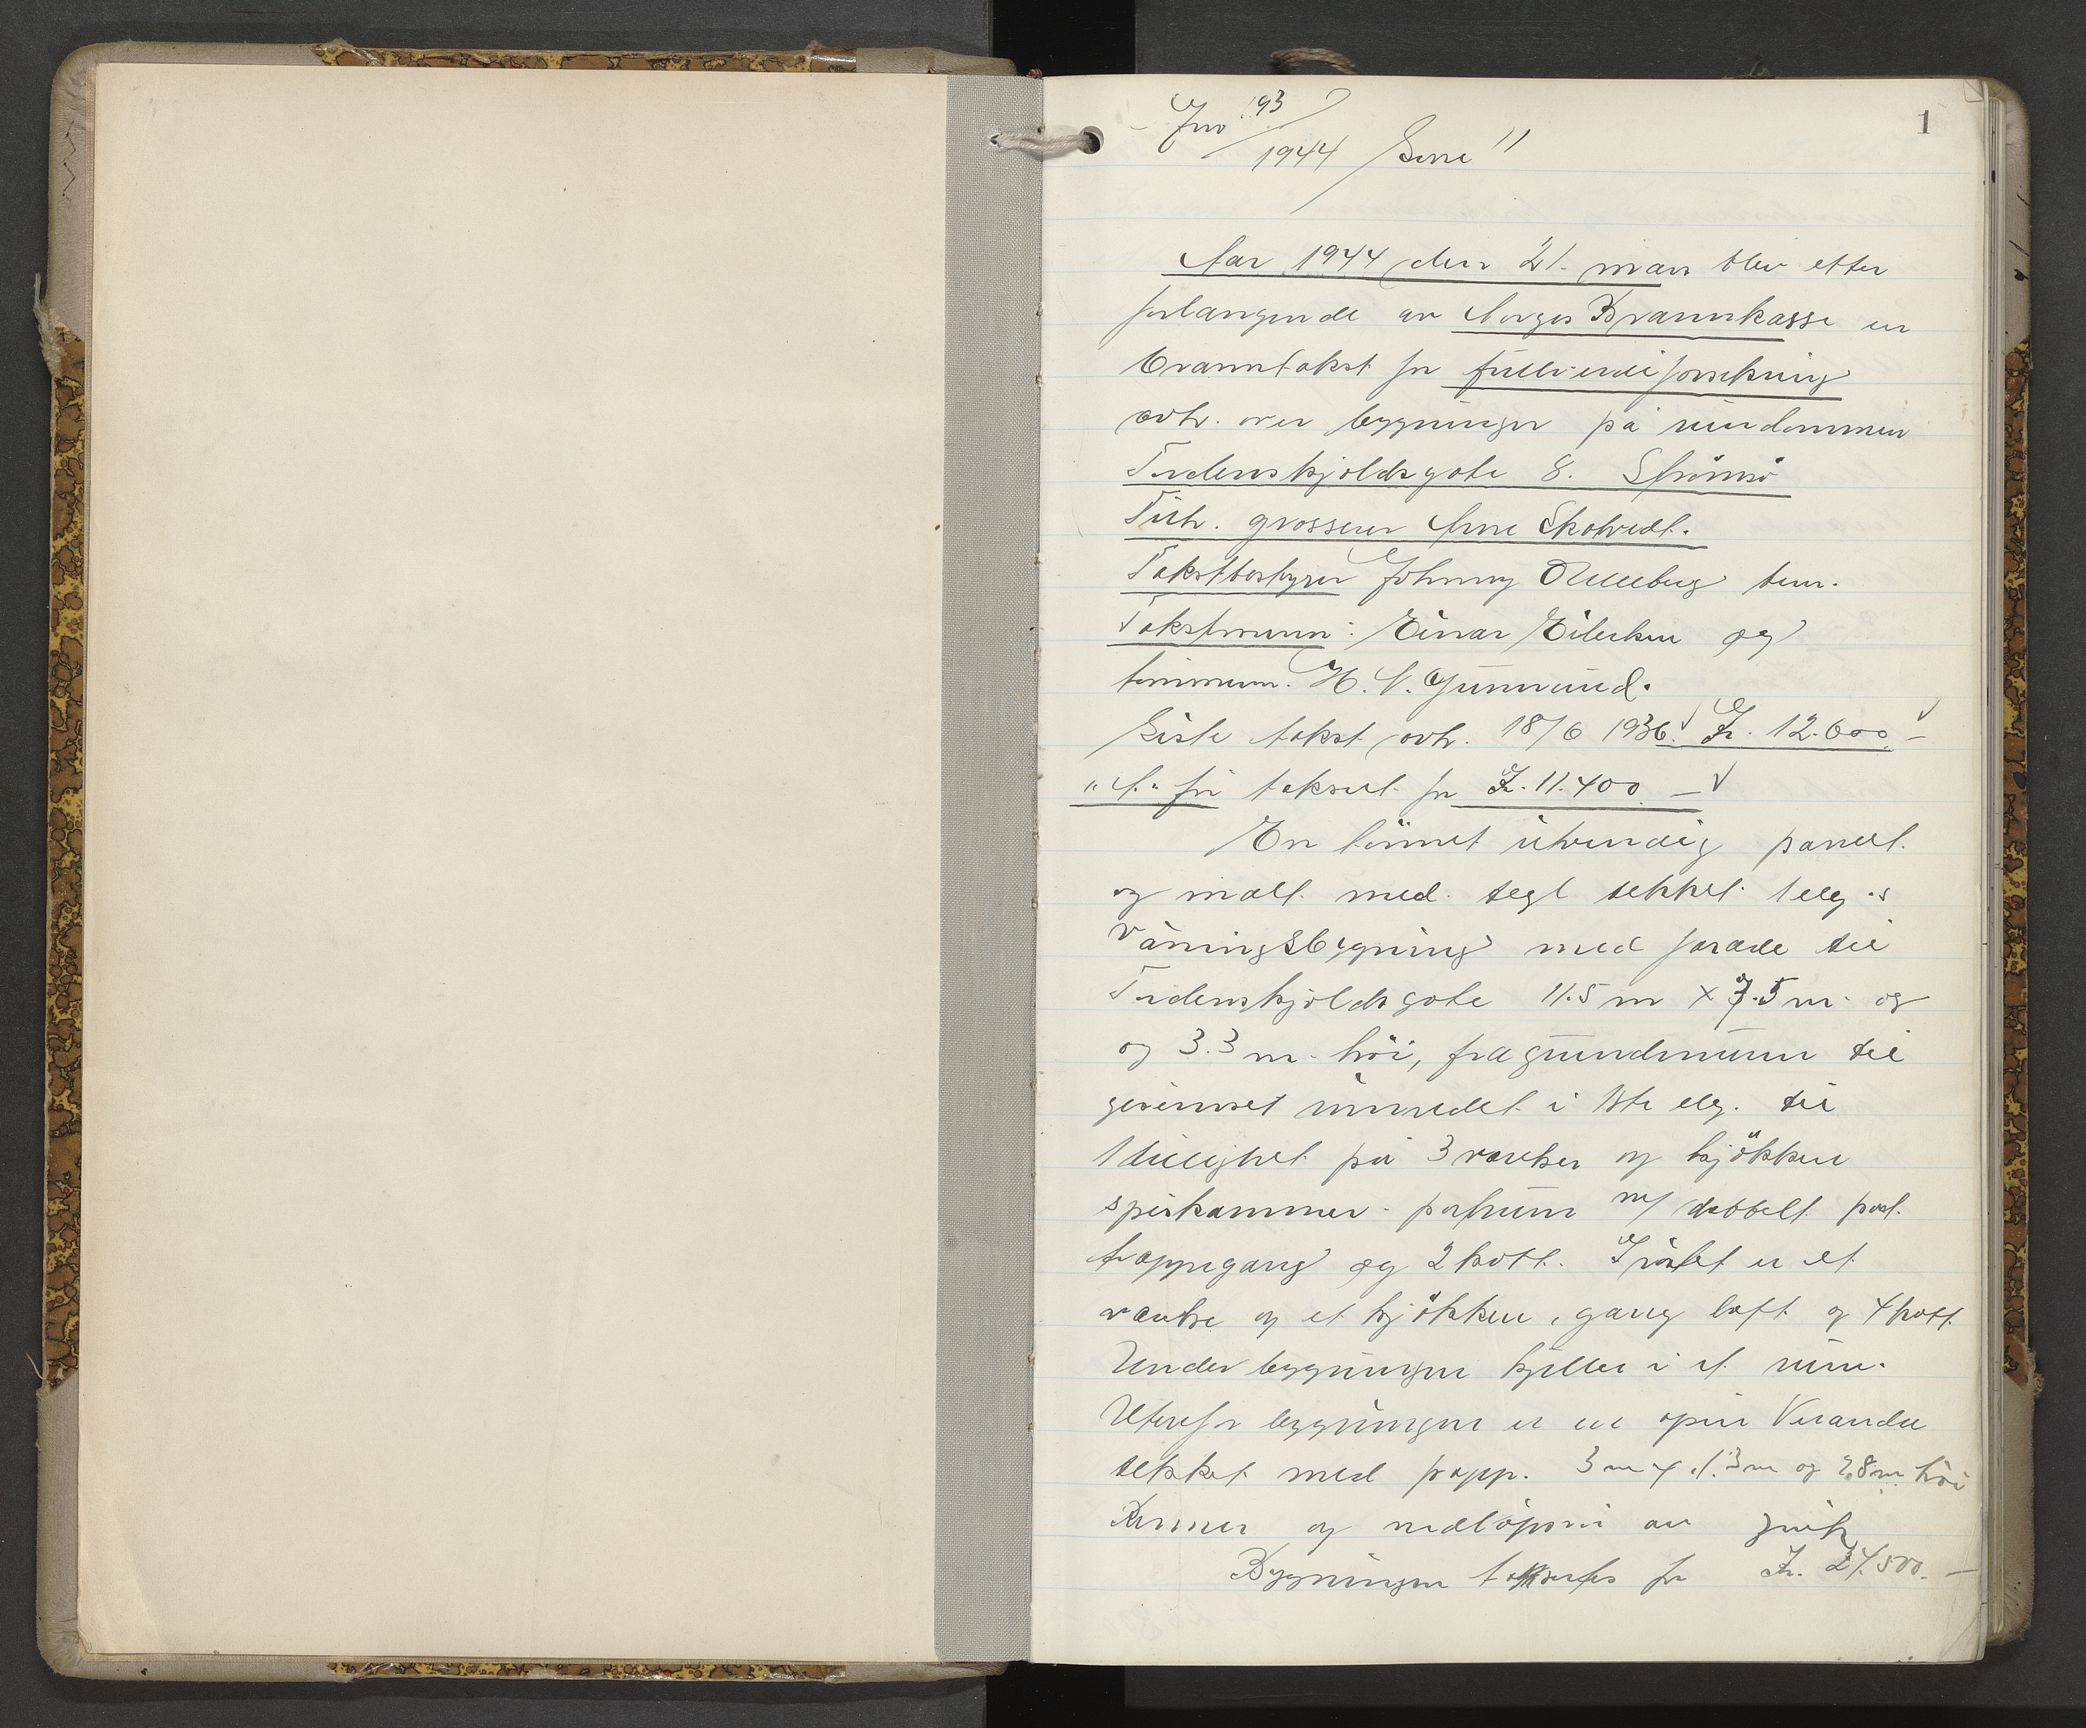 1
Jnr 193
1944
Aar 1944 den 21. mars blev efter
forlangende av Norges Brannkasse en
branntakst for fullverdiforsikring
avh. over bygninger på eiendommen
Tordenskjoldsgate 8. Strömsö
Tilh. grosserer Arne Skotvedt.
Takstbestyrer Johnny Ulleberg tem.
Takstmenn: Einar Eilertsen og
tömmerm. H. N. Gummerud.
Siste takst avh. 18/6 1936 Kr. 12.600 –
"A." før taksert for Kr. 11.400 –
En tömret utvendig panelt
og malt med tegl tekket 1 etg.s
våningsbygning med fasade til
Tordenskjoldsgate 11.5 m x 7.5 m. og
og 3.3 m. höi, fra grundmuren til
gesimset innredet i 1ste etg. til
1 leilighet på 3 værelser og kjökken
spiskammer. portrum m/ dobbelt port.
trappegang og 2 kott. I röstet er et
værelse og et kjökken, gang loft og 4 kott
Under bygningen kjeller i et rum.
Utenfor bygningen er en open Veranda
tekket med papp. 3 m x 1.3 m og 2.8 m höi
Renner og nedlöpsrör av zink
Bygningen takseres for Kr. 27.500. –